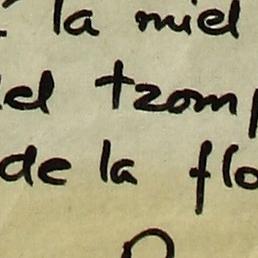 la miel
el tromp
de la flo